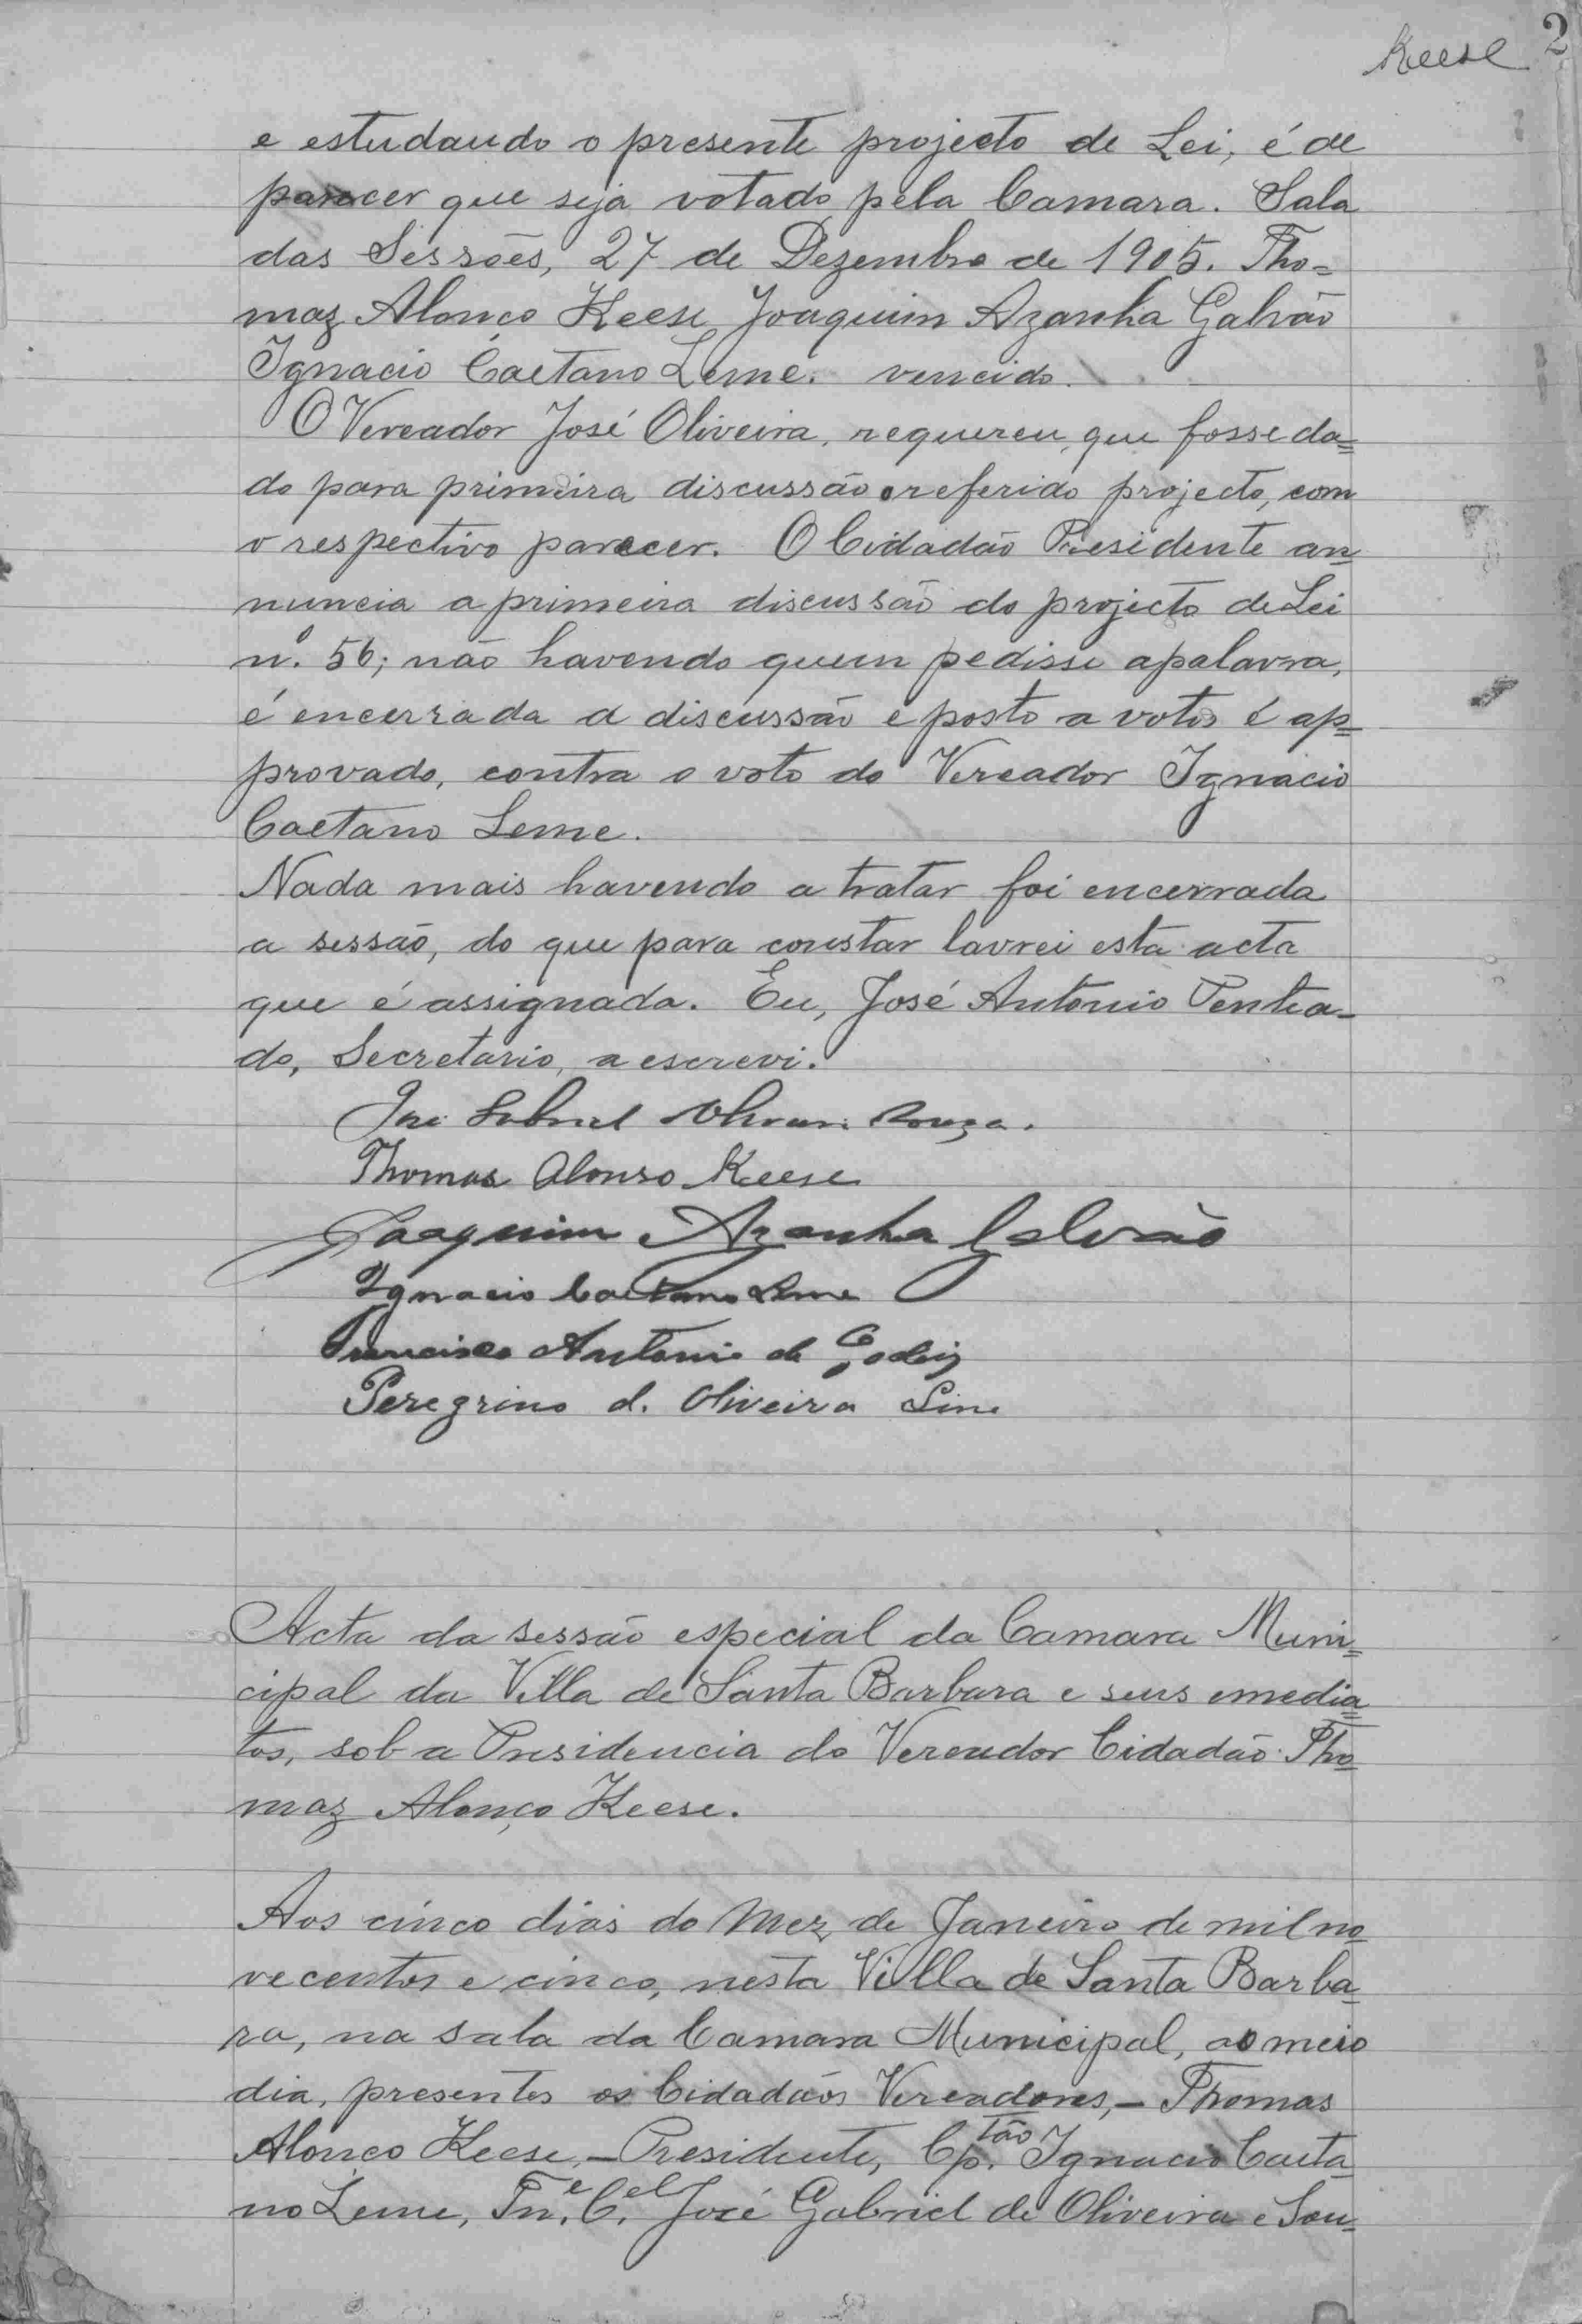 Keese 2
e estudando o presente projecto de Lei, é de
parecer que seja votado pela Camara. Sala
das Sessões, 27 de Dezembro de 1905. Tho=
maz Alonço Keese Joaquim Azanha Galvão
Ignacio Caetano Leme. vencido.
O Vereador José Oliveira, requereu, que fosse da=
do para primeira discussão o referido projecto, com
o respectivo parecer. O Cidadão Presidente an=
nuncia a primeira discussão do projecto de Lei
n.º 56; não havendo quem pedisse a palavra,
é encerrada a discussão e posto a votos é ap=
provado, contra o voto do Vereador Ignacio
Caetano Leme.
Nada mais havendo a tratar foi encerrada
a sessão, do que para constar lavrei esta acta
que é assignada. Eu, José Antonio Pentea-
do, Secretario, a escrevi.
José Gabriel Oliveira Souza.
Thomas Alonso Keese
Joaquim Azanha Galvão
Ignacio Caetano Leme
Francisco Antonio de Godoy
Peregrino d. Oliveira Lino
Acta da sessão especial da Camara Muni=
cipal da Villa de Santa Barbara e seus emedia=
tos, sob a Presidencia do Vereador Cidadão Tho=
maz Alonço Keese.
Aos cinco dias do Mez de Janeiro de mil no=
vecentos e cinco, nesta Villa de Santa Barba=
ra, na sala da Camara Municipal, ao meio
dia, presentes os Cidadãos Vereadores,- Thomas
Alonço Keese,- Presidente, Cp.tão Ignacio Caeta=
no Leme, Tn.e C.el José Gabriel de Oliveira e Sou=